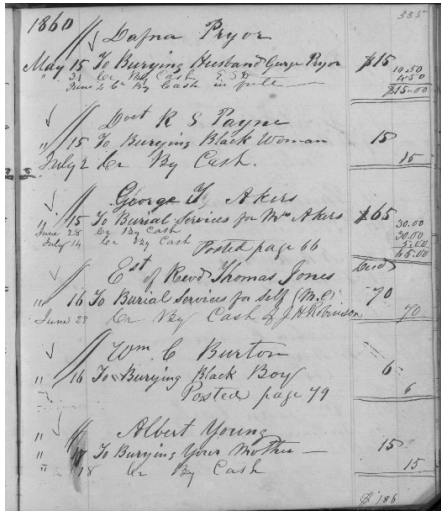 1860 335
Dafna Pryor
May 15 To Burying Husband George Pryor $15
" 31 Cr By Cash 10.50
June 4 Cr By Cash in full 4.50
$15.00
Doct R S Payne
" 15 To Burying Black Woman 15
July 2 Cr By Cash. 15
George Akers
" 15 To Burial Services for Mrs Akers $65
June 28 Cr By Cash 30.00
July 14 Cr By Cash 30.00
Posted page 66 5.00
65.00
Est of Revd Thomas Jones
" 16 To Burial Services for Self (M.C) 70
June 28 Cr By Cash of J H Robinson 70
Wm C Burton
" 16 To Burying Black Boy 6
Posted page 79 6
Albert Young
" 17 To Burying Your Mother 15
" 18 Cr By Cash 15
$ 186